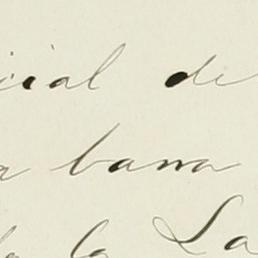 cial de
a barra
la La